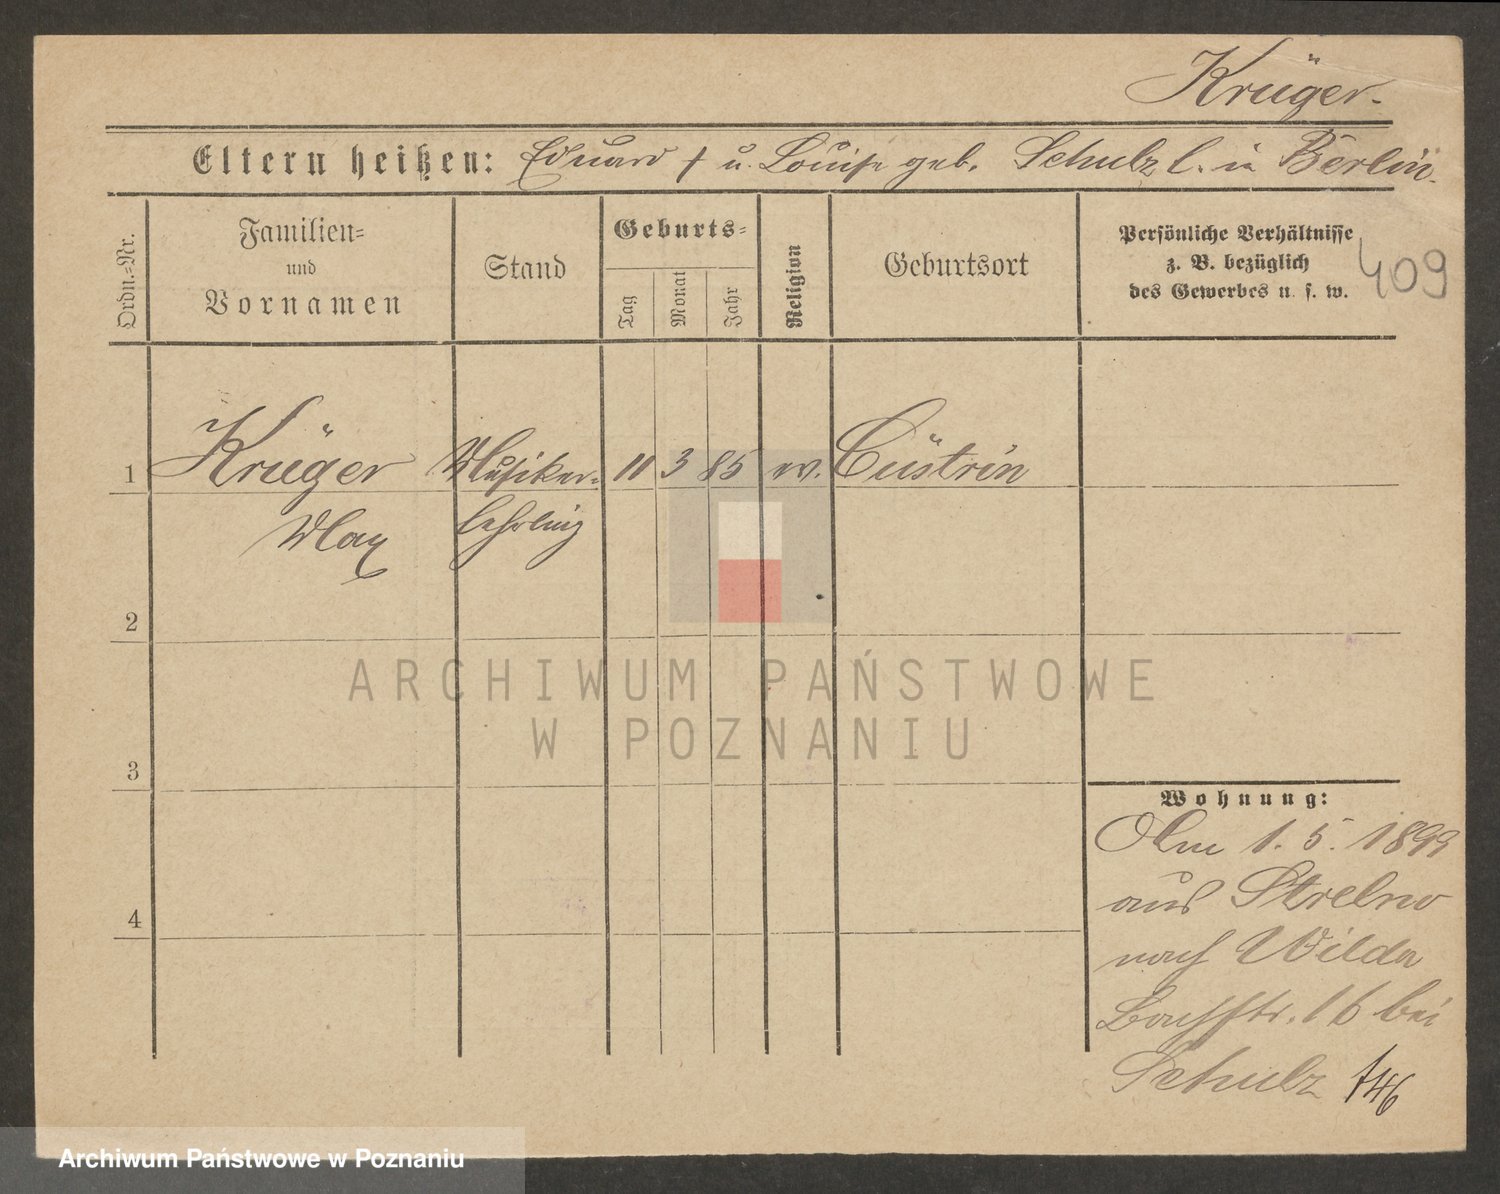 Krüger.
Eltern heißen: Eduard † u. Louise geb. Schulz l. in Berlin.
Ordn.=Nr.
Familien=
und
Vornamen
Stand
Geburts=
Tag
Monat
Jahr
Religion
Geburtsort
Persönliche Verhältnisse
z. B. bezüglich
des Gewerbes u. s. w.
409
1 Krüger Musiker= 11 3 85 ev. Cüstrin
Max lehrling
2
3
4
Wohnung:
Am 1. 5. 1899
aus Strelno
nach Wilda
Bachstr. 16 bei
Schulz
ARCHIWUM PAŃSTWOWE
W POZNANIU
Archiwum Państwowe w Poznaniu